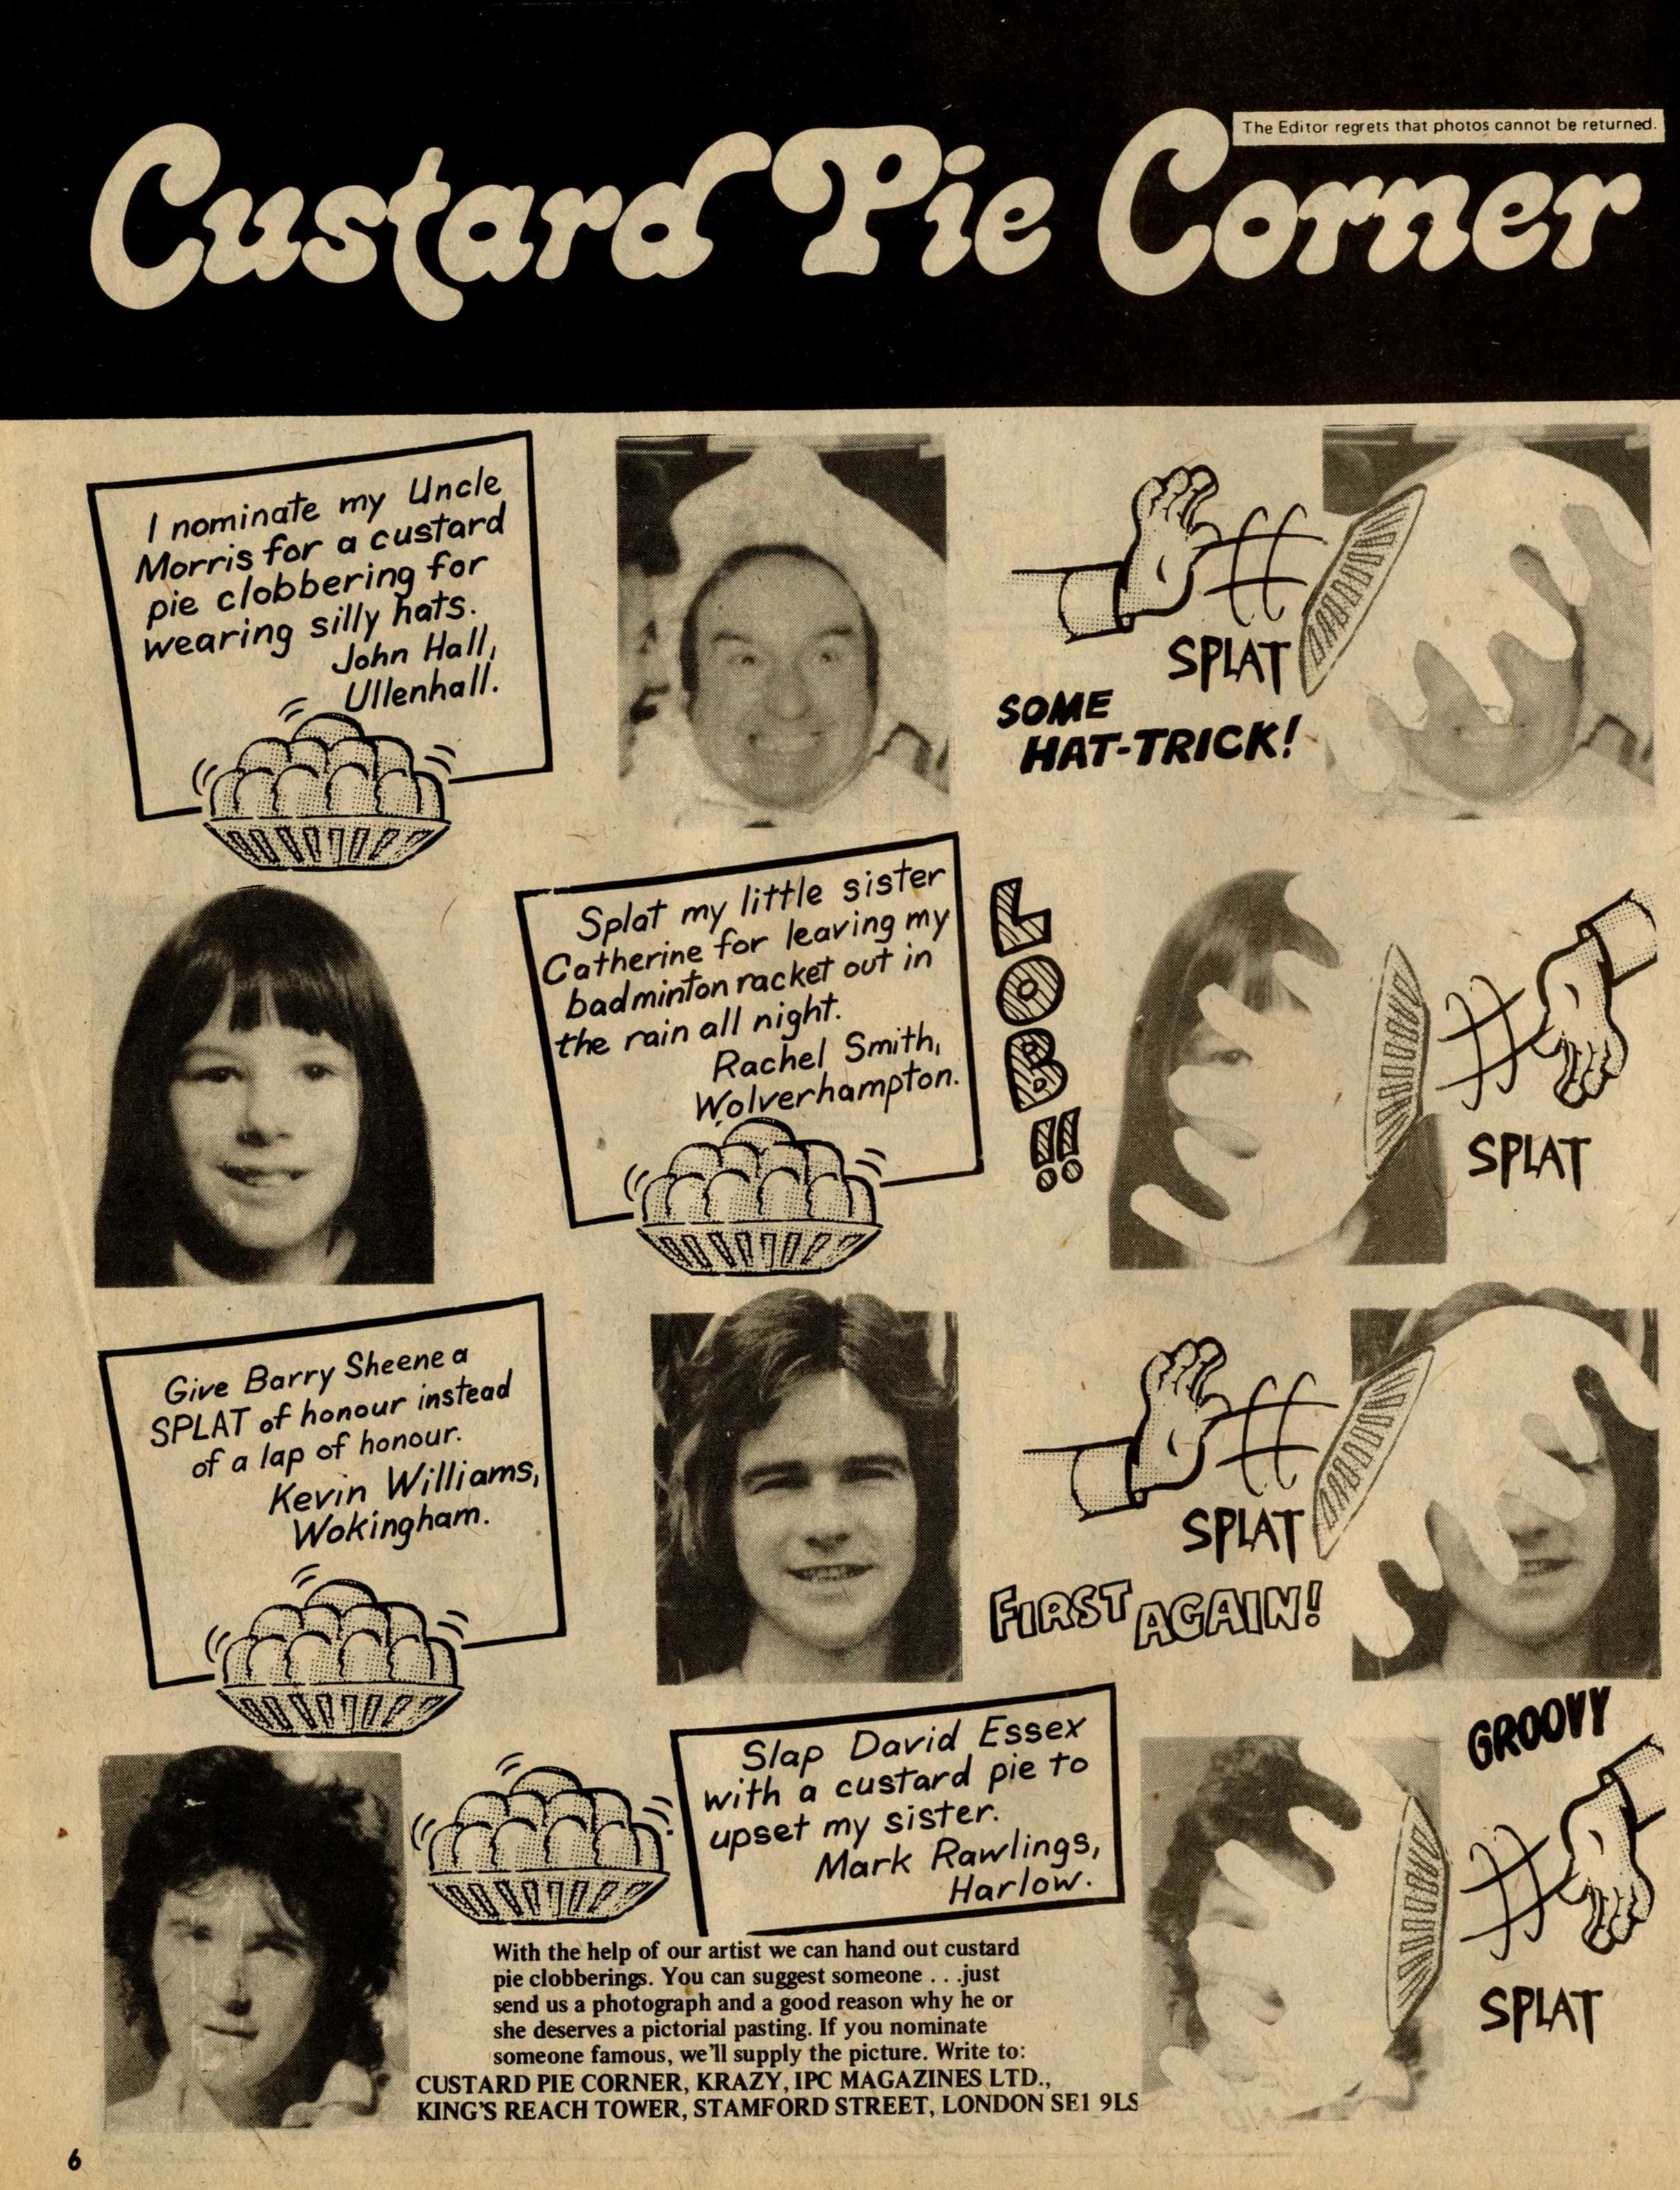 The Editor regrets that photos cannot be returned.
Custard Pie Corner
I nominate my Uncle
Morris for a custard
pie clobbering for
wearing silly hats.
John Hall,
Ullenhall.
SPLAT
SOME
HAT-TRICK!
Splat my little sister
Catherine for leaving my
badminton racket out in
the rain all night.
Rachel Smith,
Wolverhampton.
LOB!!
SPLAT
Give Barry Sheene a
SPLAT of honour instead
of a lap of honour.
Kevin Williams,
Wokingham.
SPLAT
FIRST AGAIN!
Slap David Essex
with a custard pie to
upset my sister.
Mark Rawlings,
Harlow.
GROOVY
SPLAT
With the help of our artist we can hand out custard
pie clobberings. You can suggest someone . . .just
send us a photograph and a good reason why he or
she deserves a pictorial pasting. If you nominate
someone famous, we'll supply the picture. Write to:
CUSTARD PIE CORNER, KRAZY, IPC MAGAZINES LTD.,
KING'S REACH TOWER, STAMFORD STREET, LONDON SE1 9LS
6